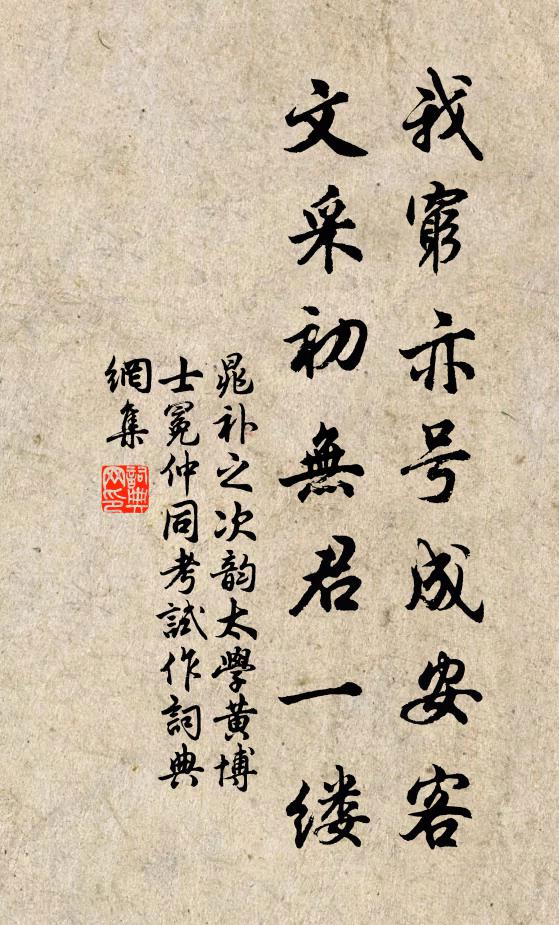 我窮亦号成安客
文采初無君一缕
晁补之次韵太學黄博
士冕仲同考試作詞典
網集
詞典
网印